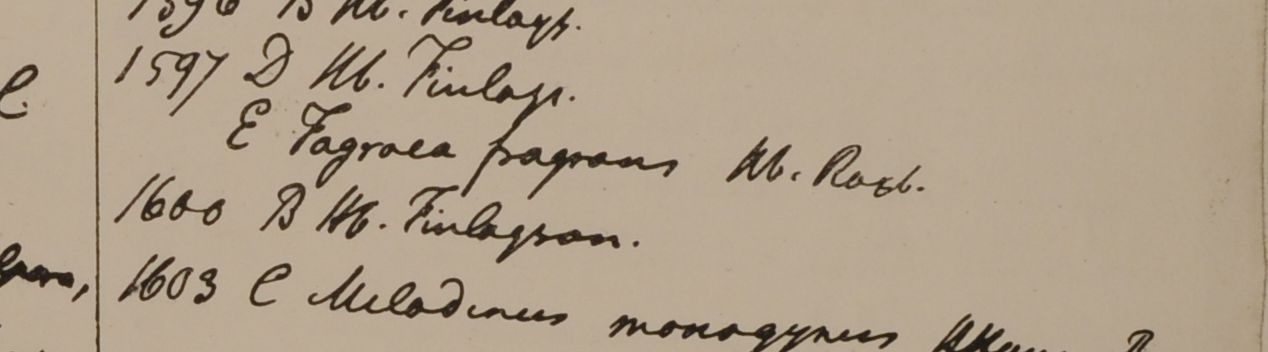 1596 B Hb. Finlays.
1597 D Hb. Finlays.
C.
E Fagraea fragrans Hb. Roxb.
1600 B Hb. Finlayson.
1603 C Melodinus monogynus